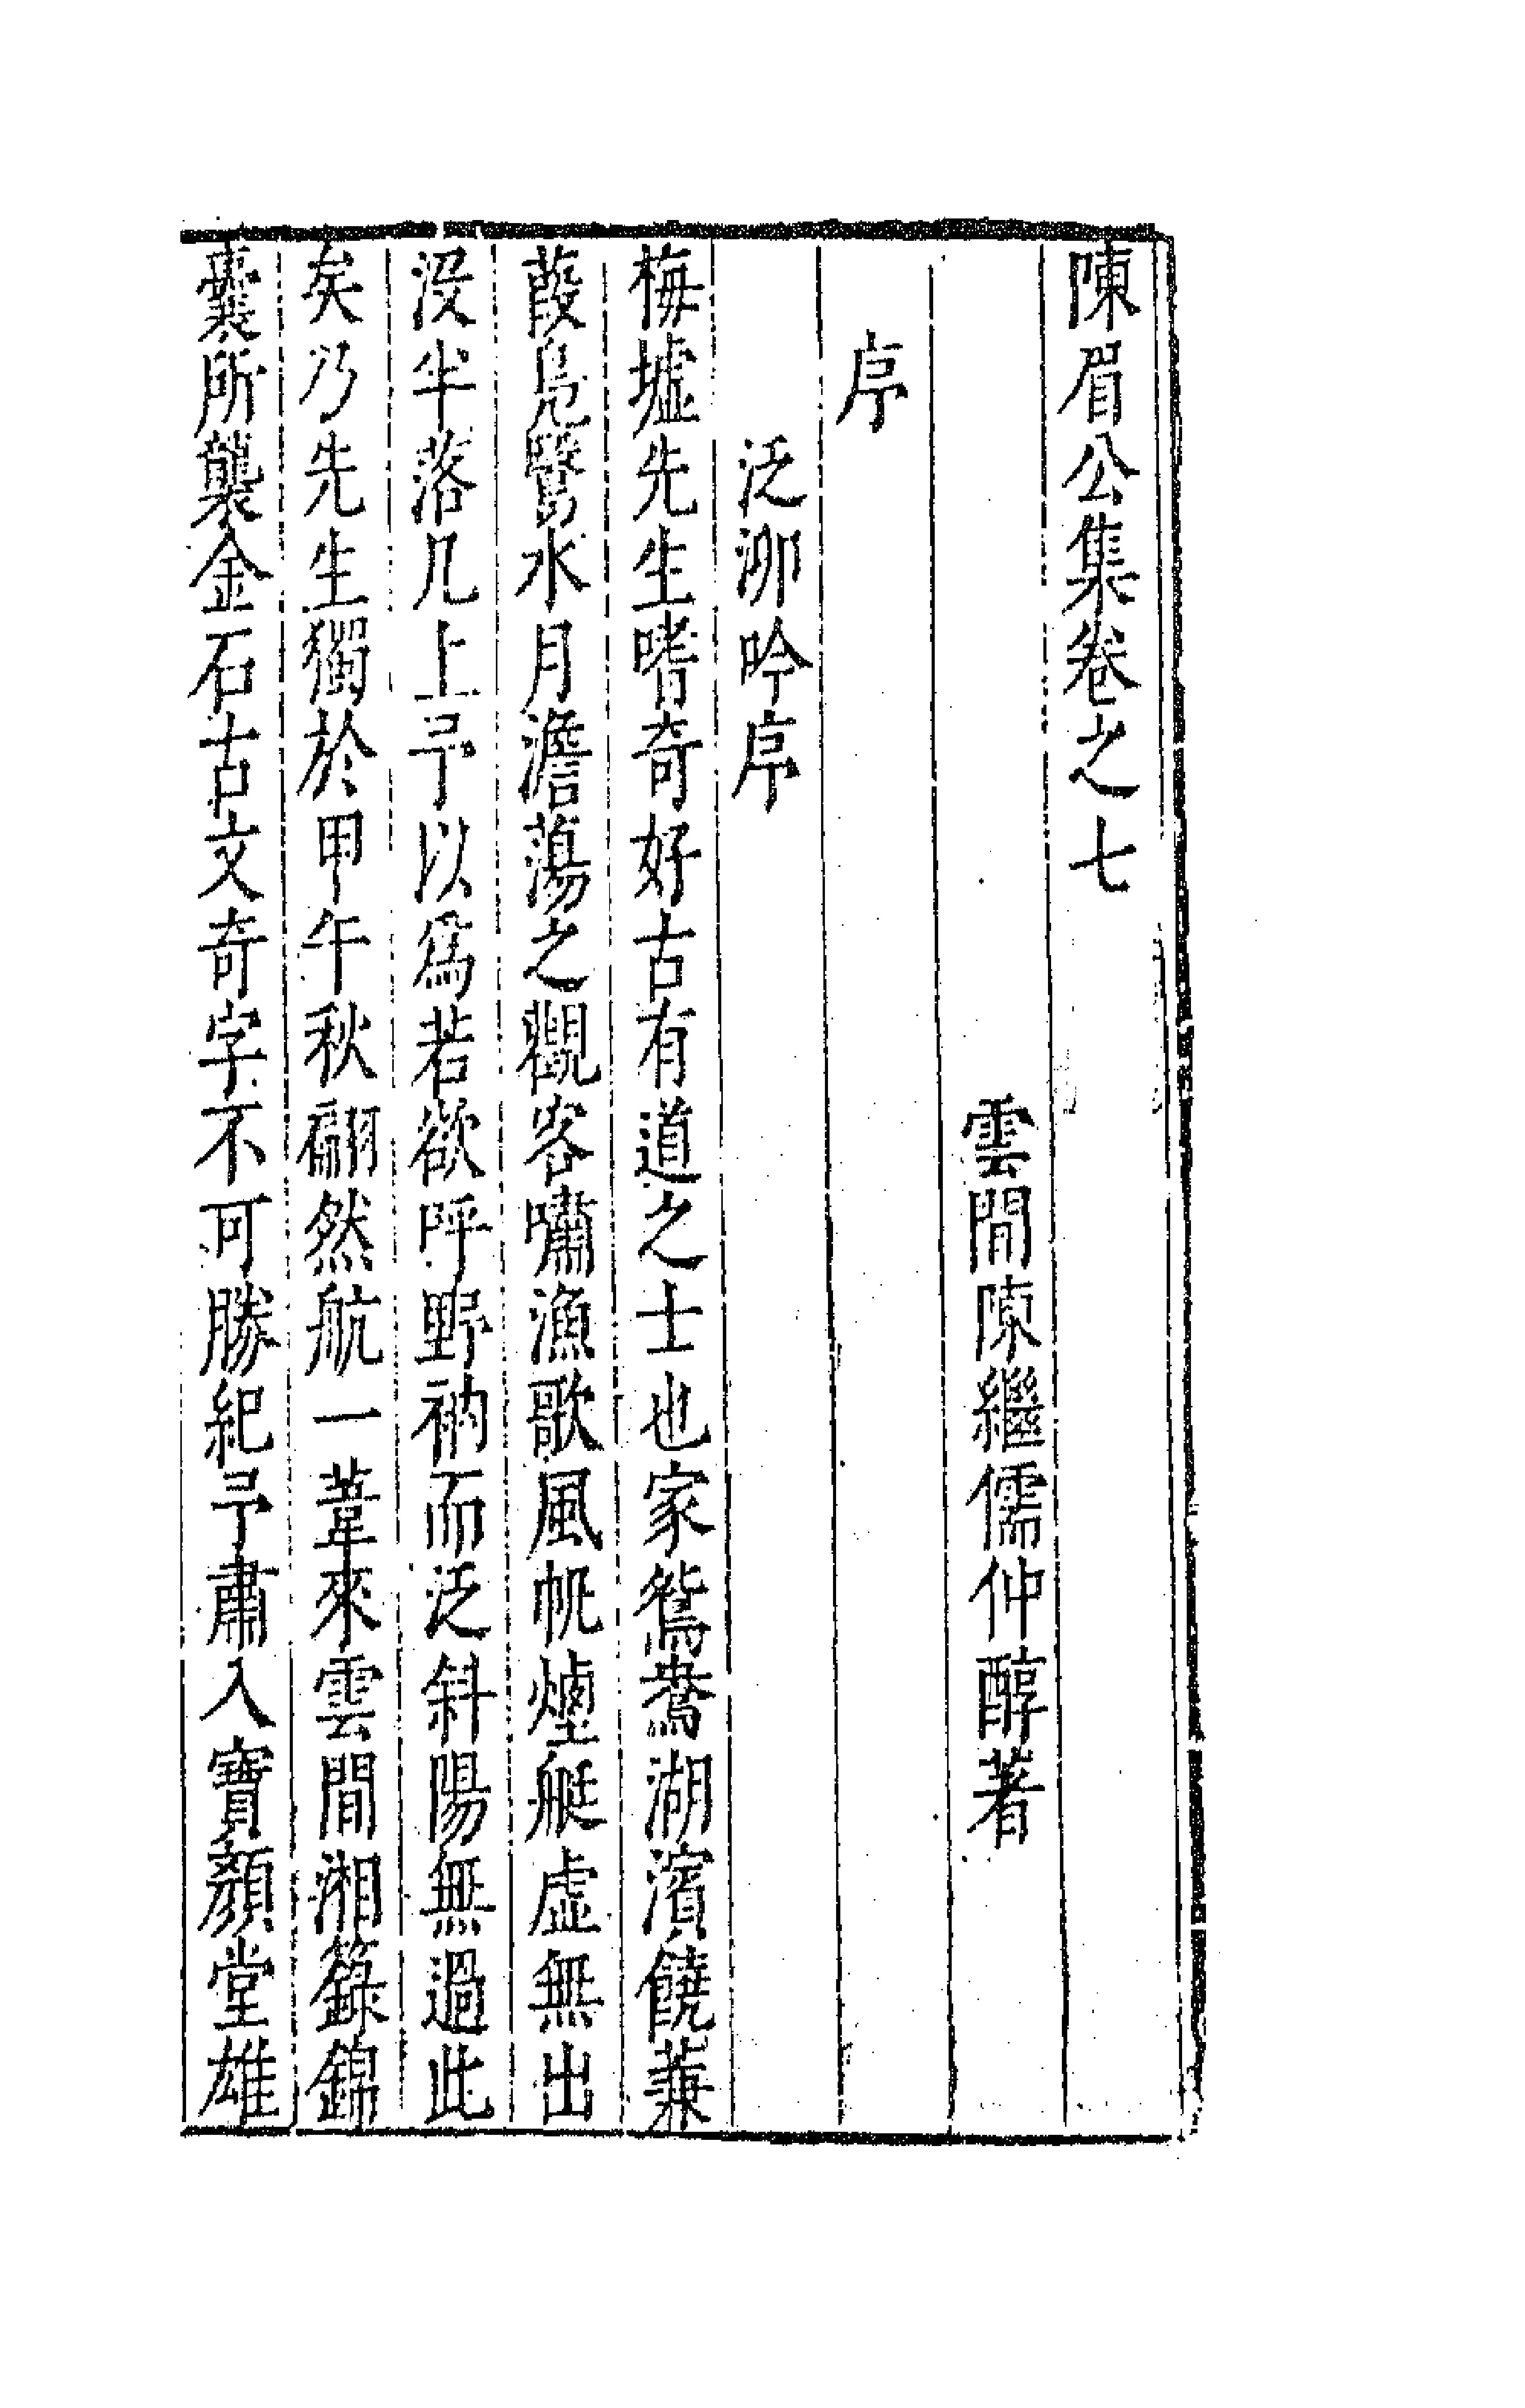 陳眉公集卷之七
雲間陳繼儒仲醇著
序
泛泖吟序
梅墟先生嗜奇好古有道之士也家鴛鴦湖濱饒蒹
葭鳧鷖水月澹蕩之觀客嘯漁歌風帆煙艇虛無出
沒半落几上予以爲若欲呼野衲而泛斜陽無過此
矣乃先生獨於甲午秋翩然航一葦來雲間湘簶錦
囊所襲金石古文奇字不可勝紀予肅入寶顏堂雄